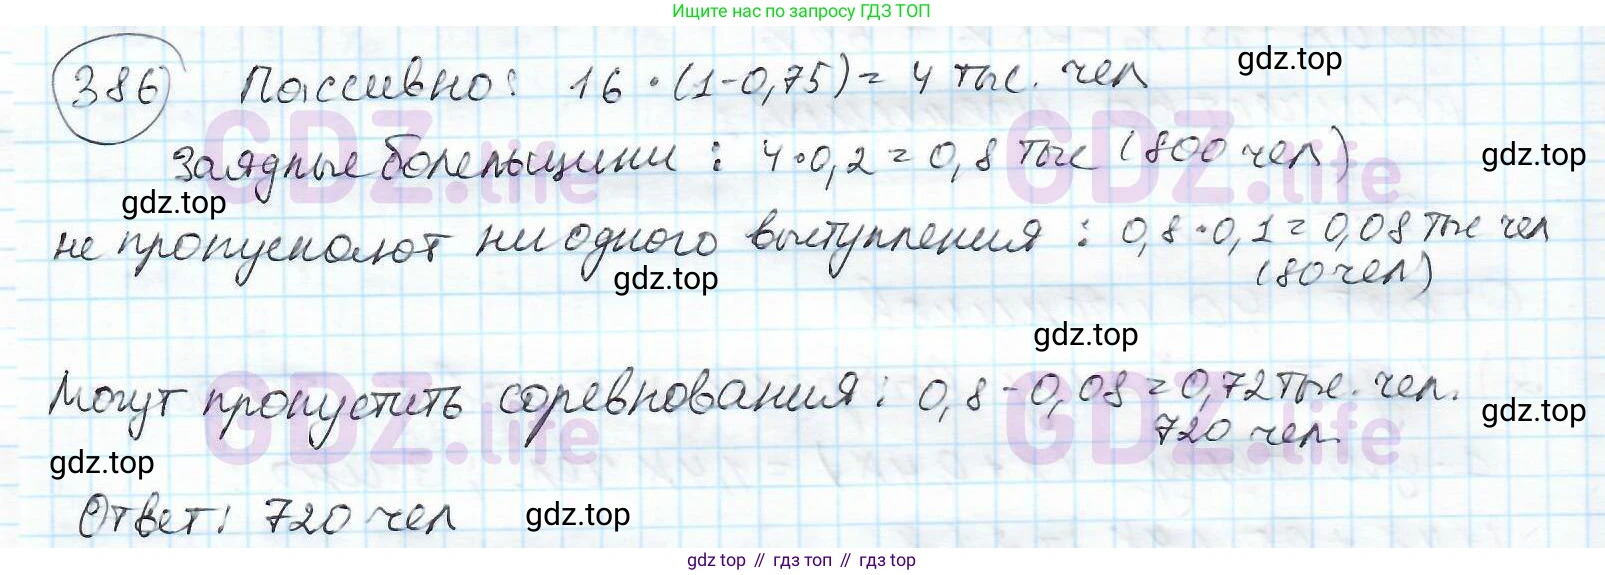 Ищите нас по запросу ГДЗ ТОП
386 Пассивно: 16 · (1-0,75) = 4 тыс. чел
gdz.top
Заядлые болельщики : 4·0,2 = 0,8 тыс (800 чел)
gdz.top
gdz.top
не пропускают ни одного выступления : 0,8·0,1 = 0,08 тыс чел
(80 чел)
gdz.top
gdz.top
Могут пропустить соревнования: 0,8-0,08=0,72 тыс. чел.
720 чел.
gdz.top
gdz.top
Ответ: 720 чел
gdz.top
GDZ.life
GDZ.life
GDZ.life
GDZ.life
gdz top // гдз топ // gdz top